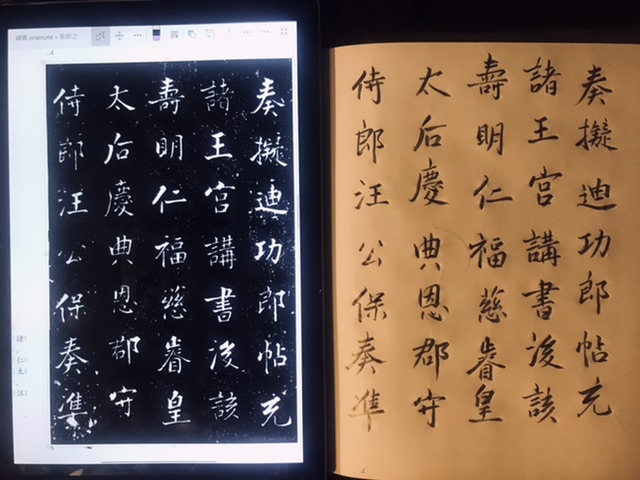 onenote
奏擬迪功郎帖充
諸王宮講書後該
壽明仁福慈睿皇
太后慶典恩郡守
侍郎汪公保奏準
奏擬迪功郎帖充
諸王宮講書後該
壽明仁福慈睿皇
太后慶典恩郡守
侍郎汪公保奏準